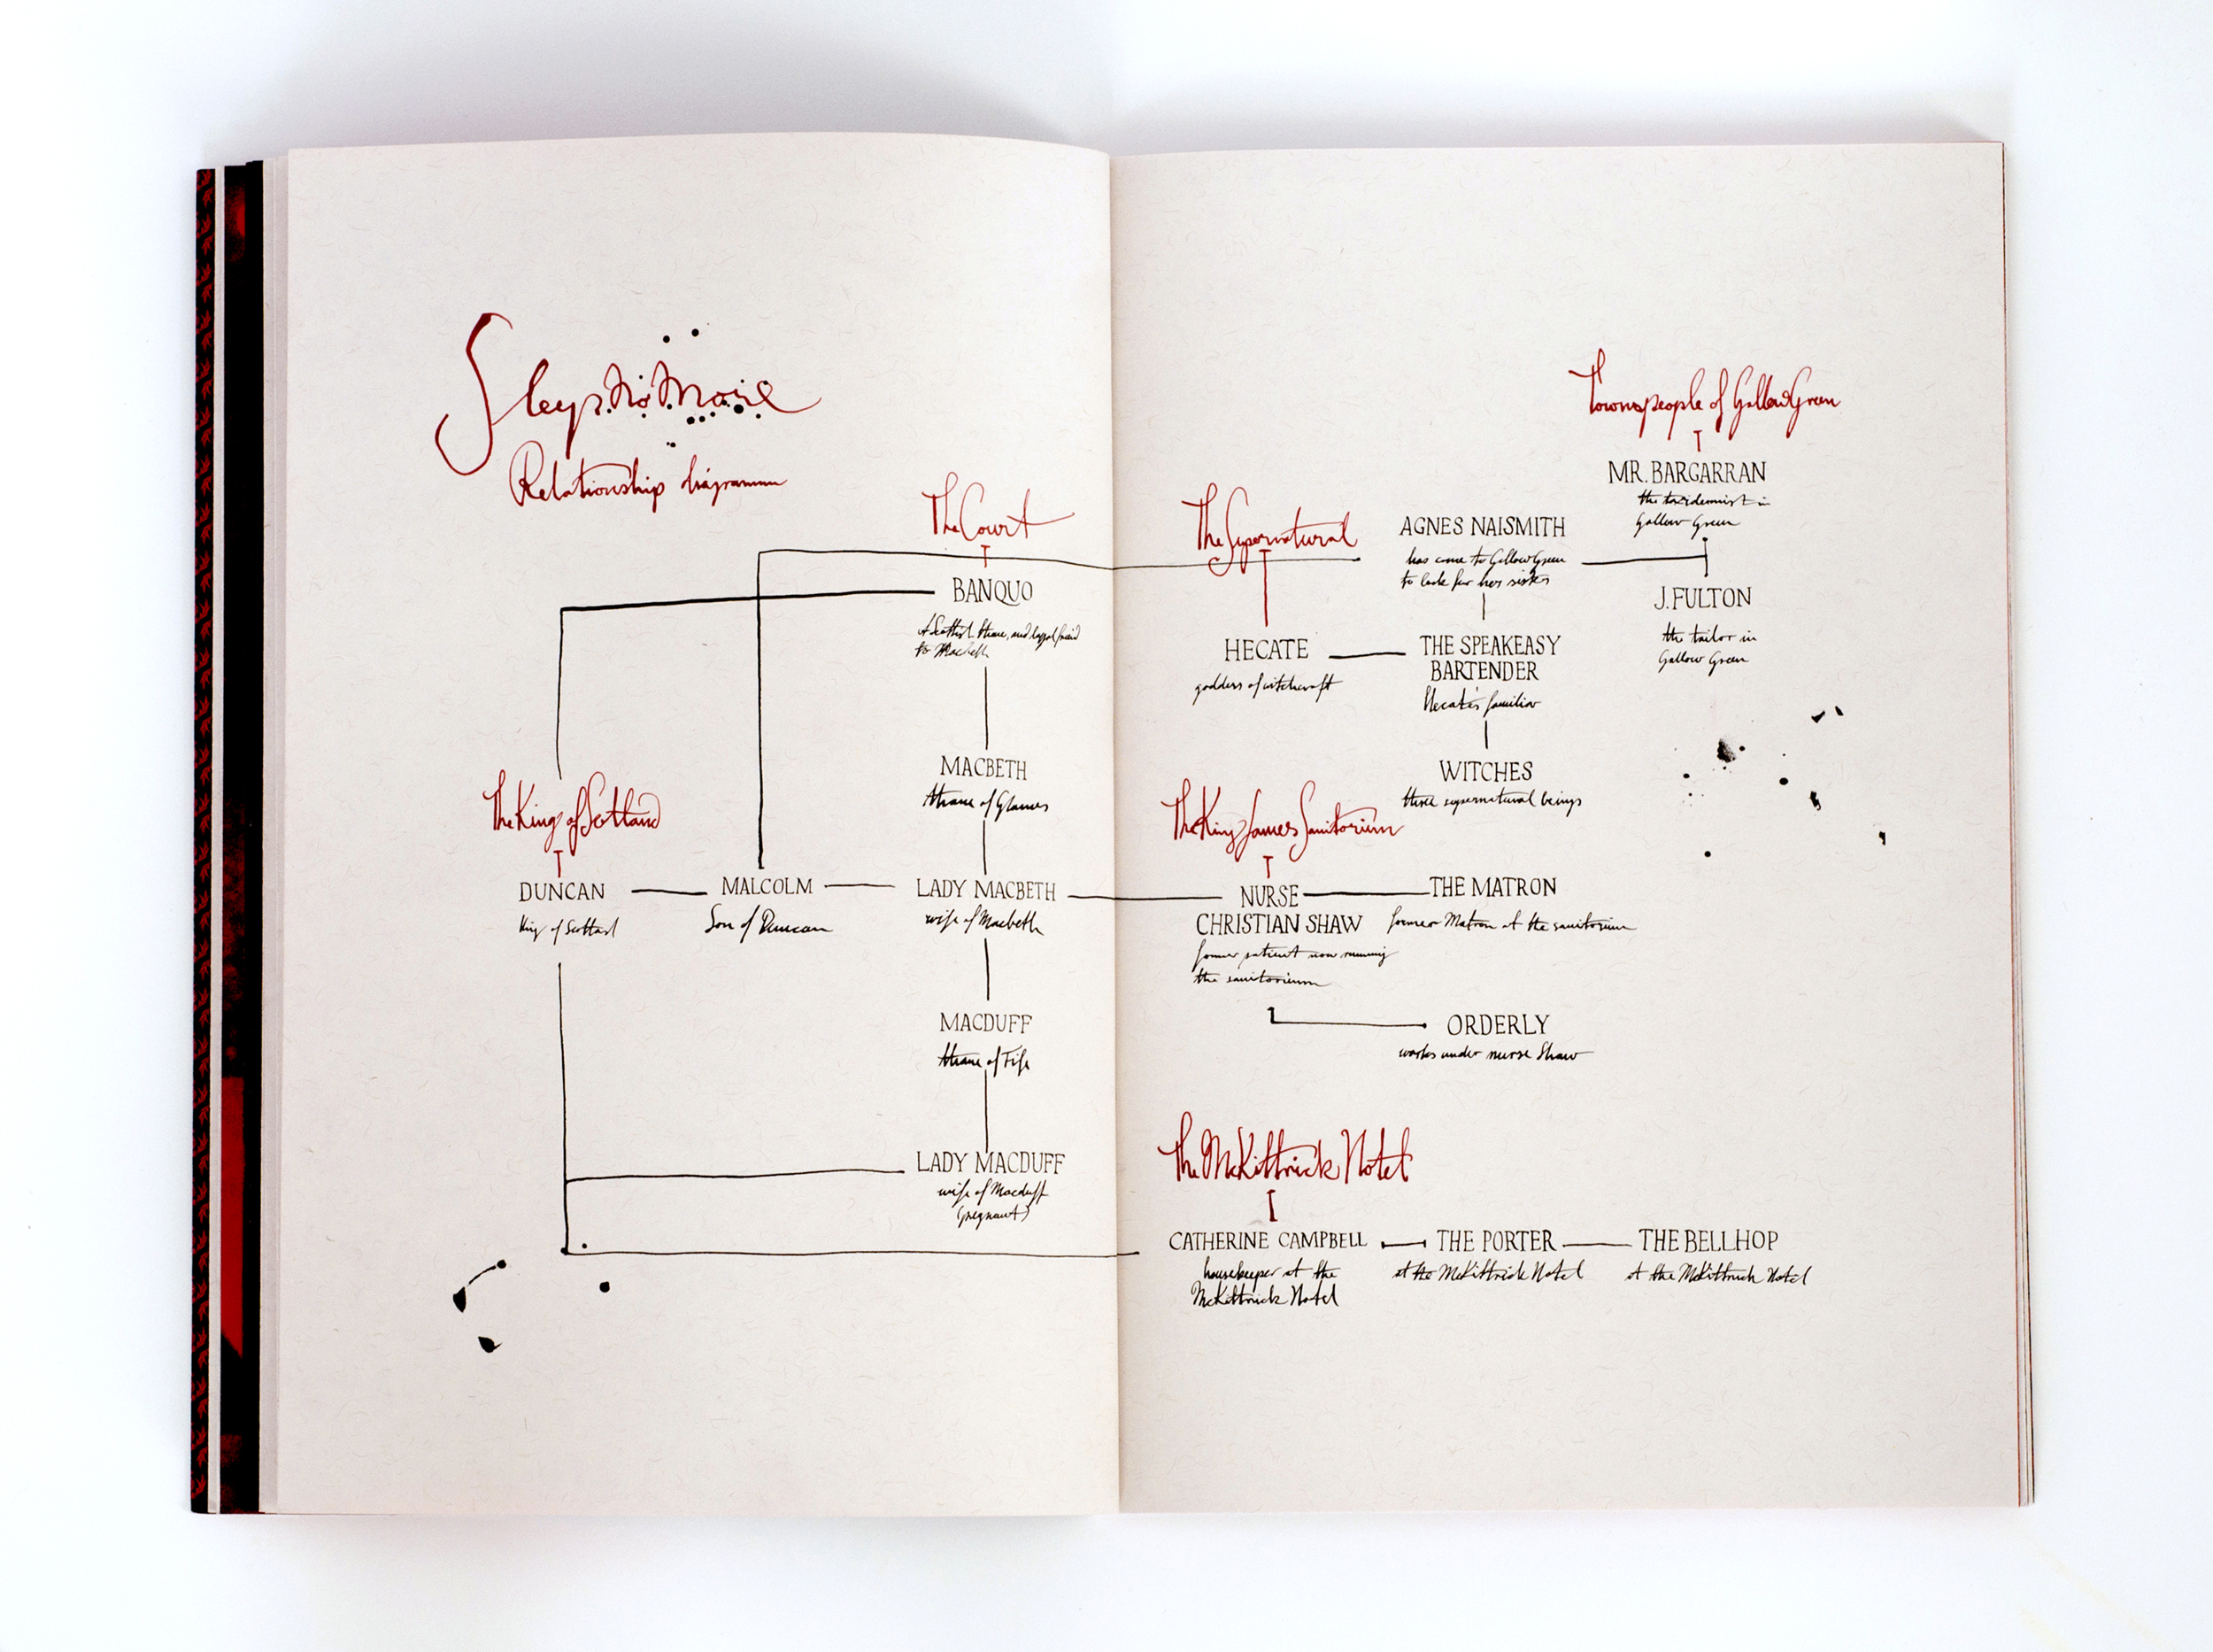 Sleep No More
Relationship diagramm
The Court
BANQUO
A Scottish thane, and loyal friend
to Macbeth
MACBETH
thane of Glamis
The King of Scotland
DUNCAN
King of Scotland
MALCOLM
Son of Duncan
LADY MACBETH
wife of Macbeth
MACDUFF
thane of Fife
LADY MACDUFF
wife of Macduff
(pregnant)
Townspeople of Gallow Green
MR. BARGARRAN
the taxidermist in
Gallow Green
The Supernatural
AGNES NAISMITH
has come to Gallow Green
to look for her sister
J. FULTON
the tailor in
Gallow Green
HECATE
goddess of witchcraft
THE SPEAKEASY
BARTENDER
Hecate's familiar
WITCHES
three supernatural beings
The King James Sanitorium
NURSE
CHRISTIAN SHAW
former patient now running
the sanitorium
THE MATRON
former Matron at the sanitorium
ORDERLY
works under nurse Shaw
The McKittrick Hotel
CATHERINE CAMPBELL
housekeeper at the
McKittrick Hotel
THE PORTER
at the McKittrick Hotel
THE BELLHOP
at the McKittrick Hotel